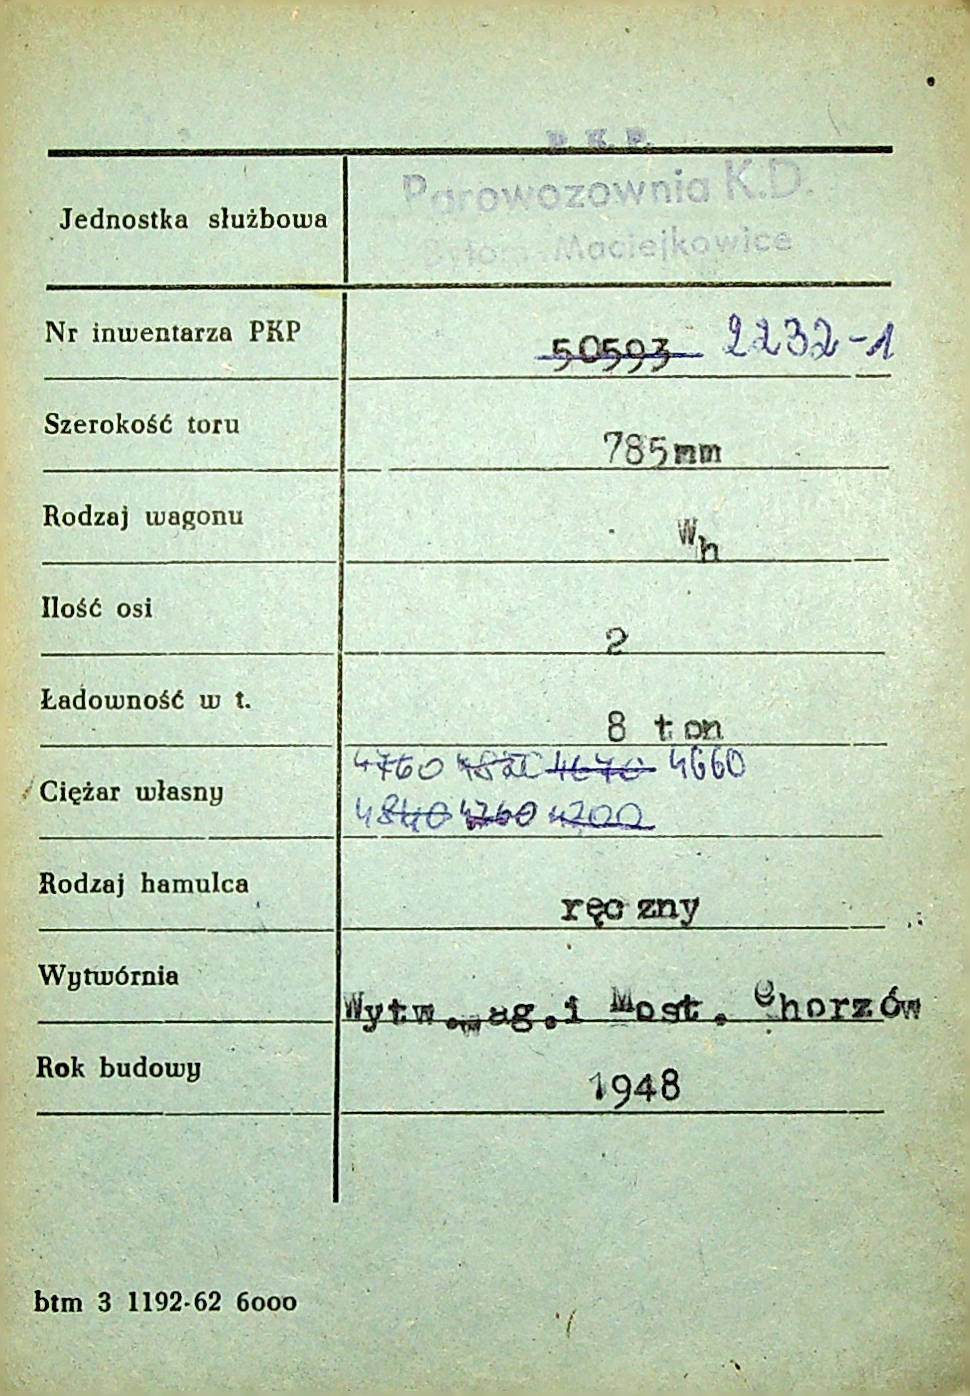 P. K. P.
Parowozownia K.D.
Jednostka służbowa
Bytom Maciejkowice
Nr inwentarza PKP 50593 2232-1
Szerokość toru 785mm
Rodzaj wagonu Wh
Ilość osi 2
Ładowność w t. 8 ton
4760 4820 4670 4660
Ciężar własny
4840 4760 4200
Rodzaj hamulca ręczny
Wytwórnia Wytw.wag.i Most. Chorzów
Rok budowy 1948
btm 3 1192-62 6000